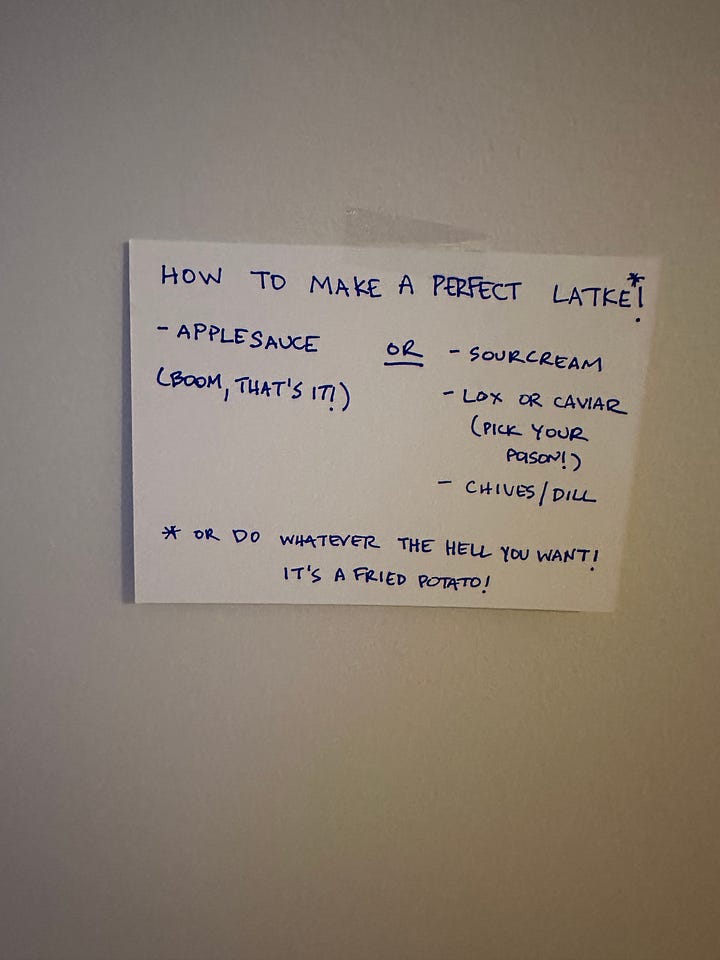 HOW TO MAKE A PERFECT LATKE!*
- APPLESAUCE
(BOOM, THAT'S IT!)
OR
- SOURCREAM
- LOX OR CAVIAR
(PICK YOUR
POISON!)
- CHIVES/DILL
* OR DO WHATEVER THE HELL YOU WANT!
IT'S A FRIED POTATO!